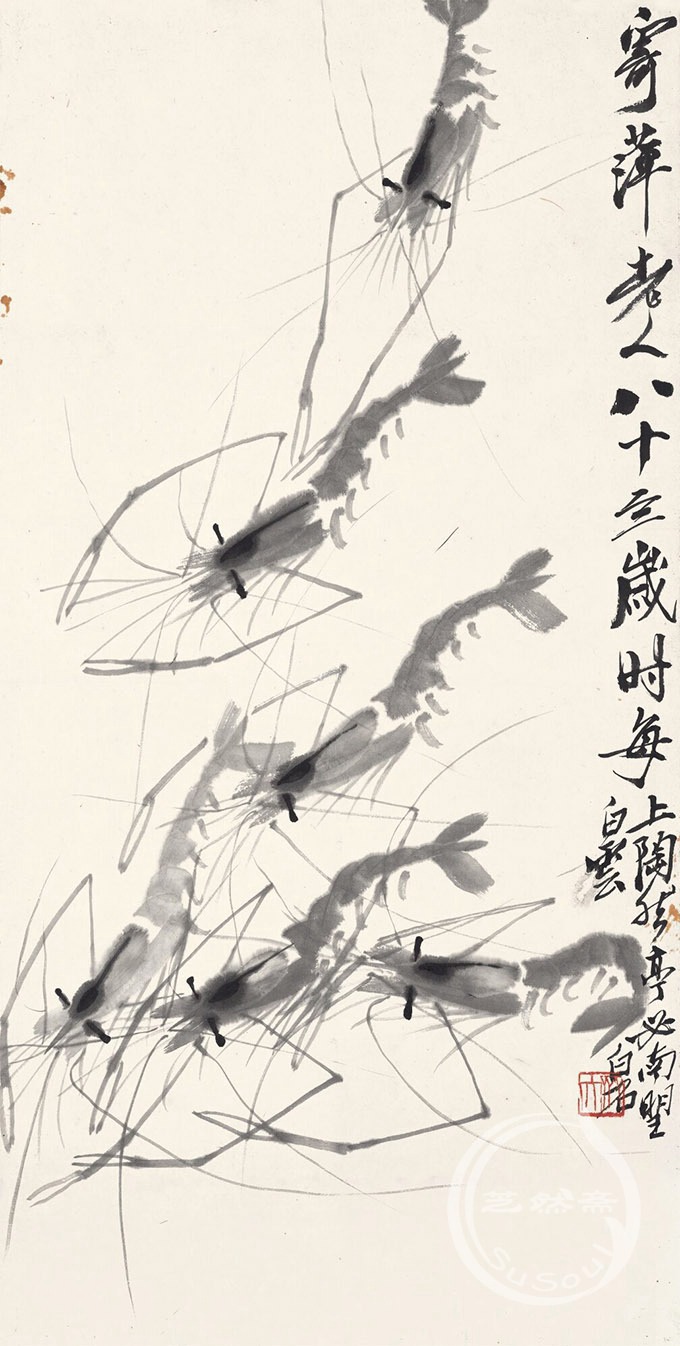 寄萍老人八十三歲时每
上陶然亭必南望
白雲
白石
芝然斋
SuSoul